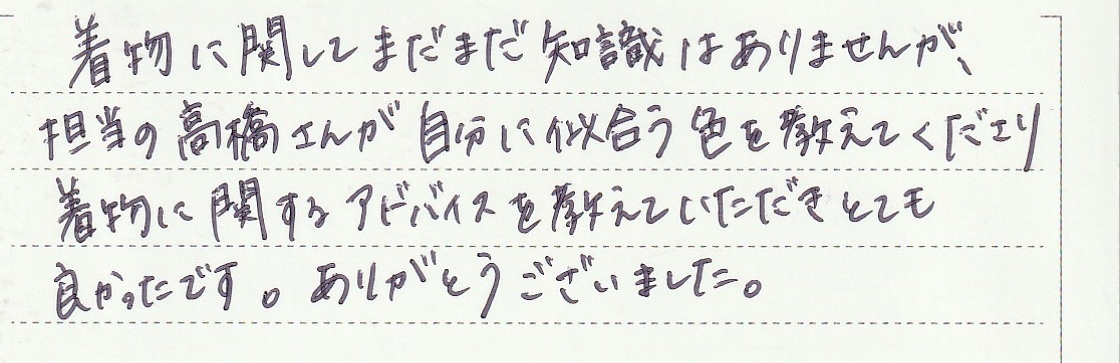 着物に関してまだまだ知識はありませんが、
担当の高橋さんが自分に似合う色を教えてくださり
着物に関するアドバイスを教えていただきとても
良かったです。ありがとうございました。